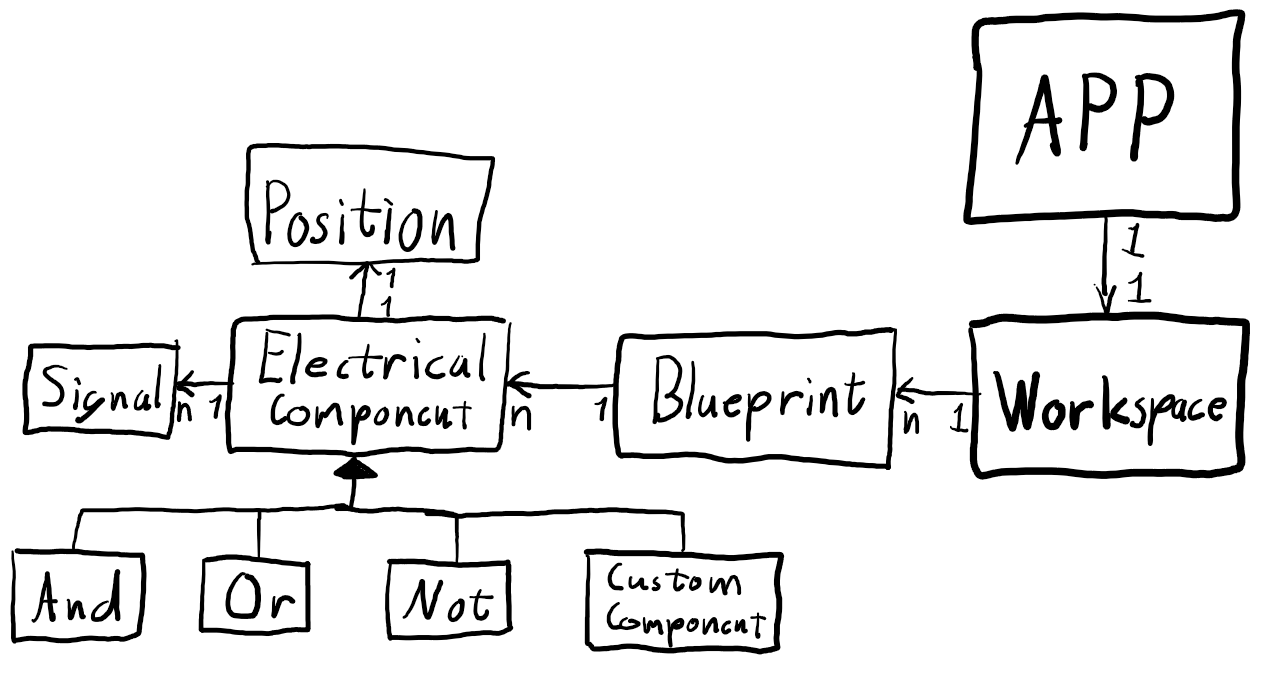 APP
1
1
Position
1
1
Signal
n
1
Electrical
Component
n
1
Blueprint
n
1
Workspace
And
Or
Not
Custom
Component